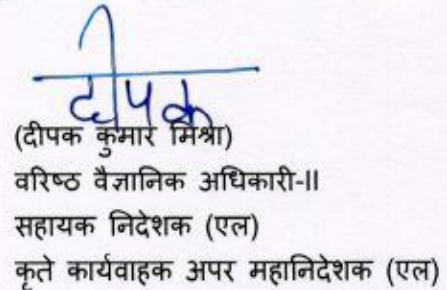 दीपक
(दीपक कुमार मिश्रा)
वरिष्ठ वैज्ञानिक अधिकारी-II
सहायक निदेशक (एल)
कृते कार्यवाहक अपर महानिदेशक (एल)